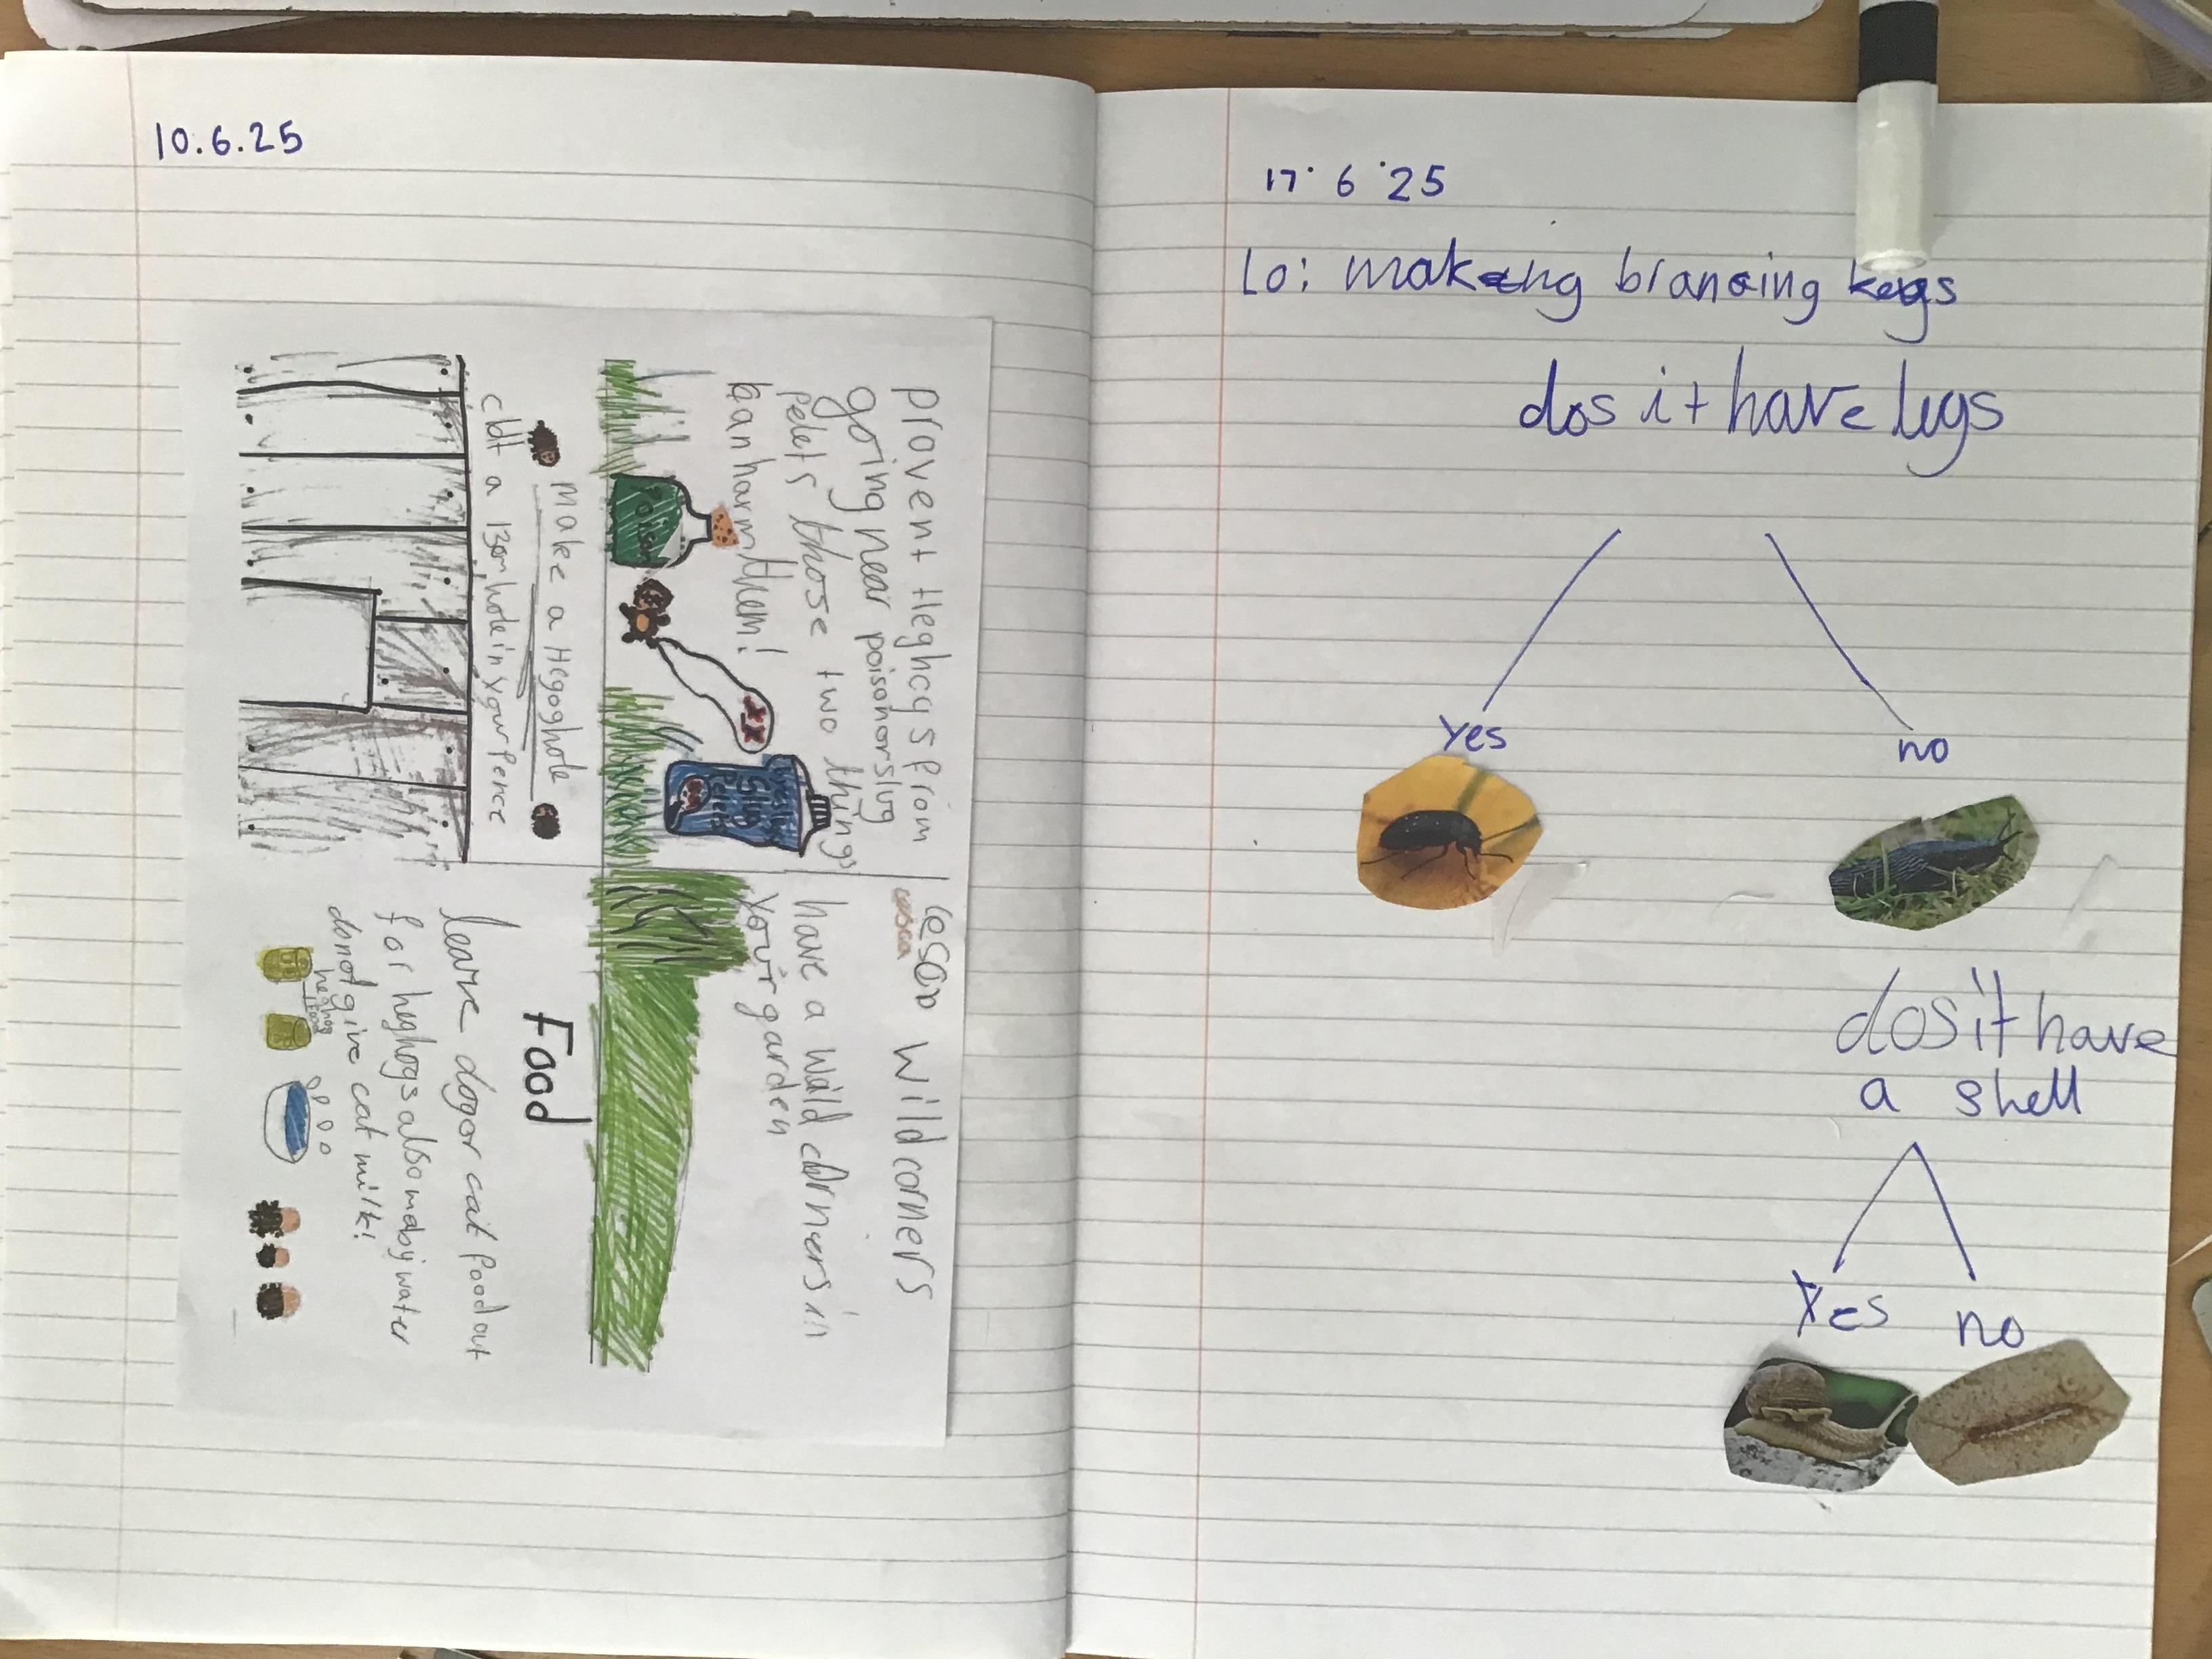 10.6.25
provent Heghogs from
going near poisonor slug
pelets those two things
can harm them!
Poison
Slug
Pelets
make a Hegoghole
a 13cm hole in your fence
wild corners
have a wild corners in
your garden
Food
leave dog or cat food out
for heghogs also maby water
do not give cat milk!
heghog
food
17.6.25
Lo: making brancing keys
dos it have legs
yes
no
dos it have
a shell
Yes
no